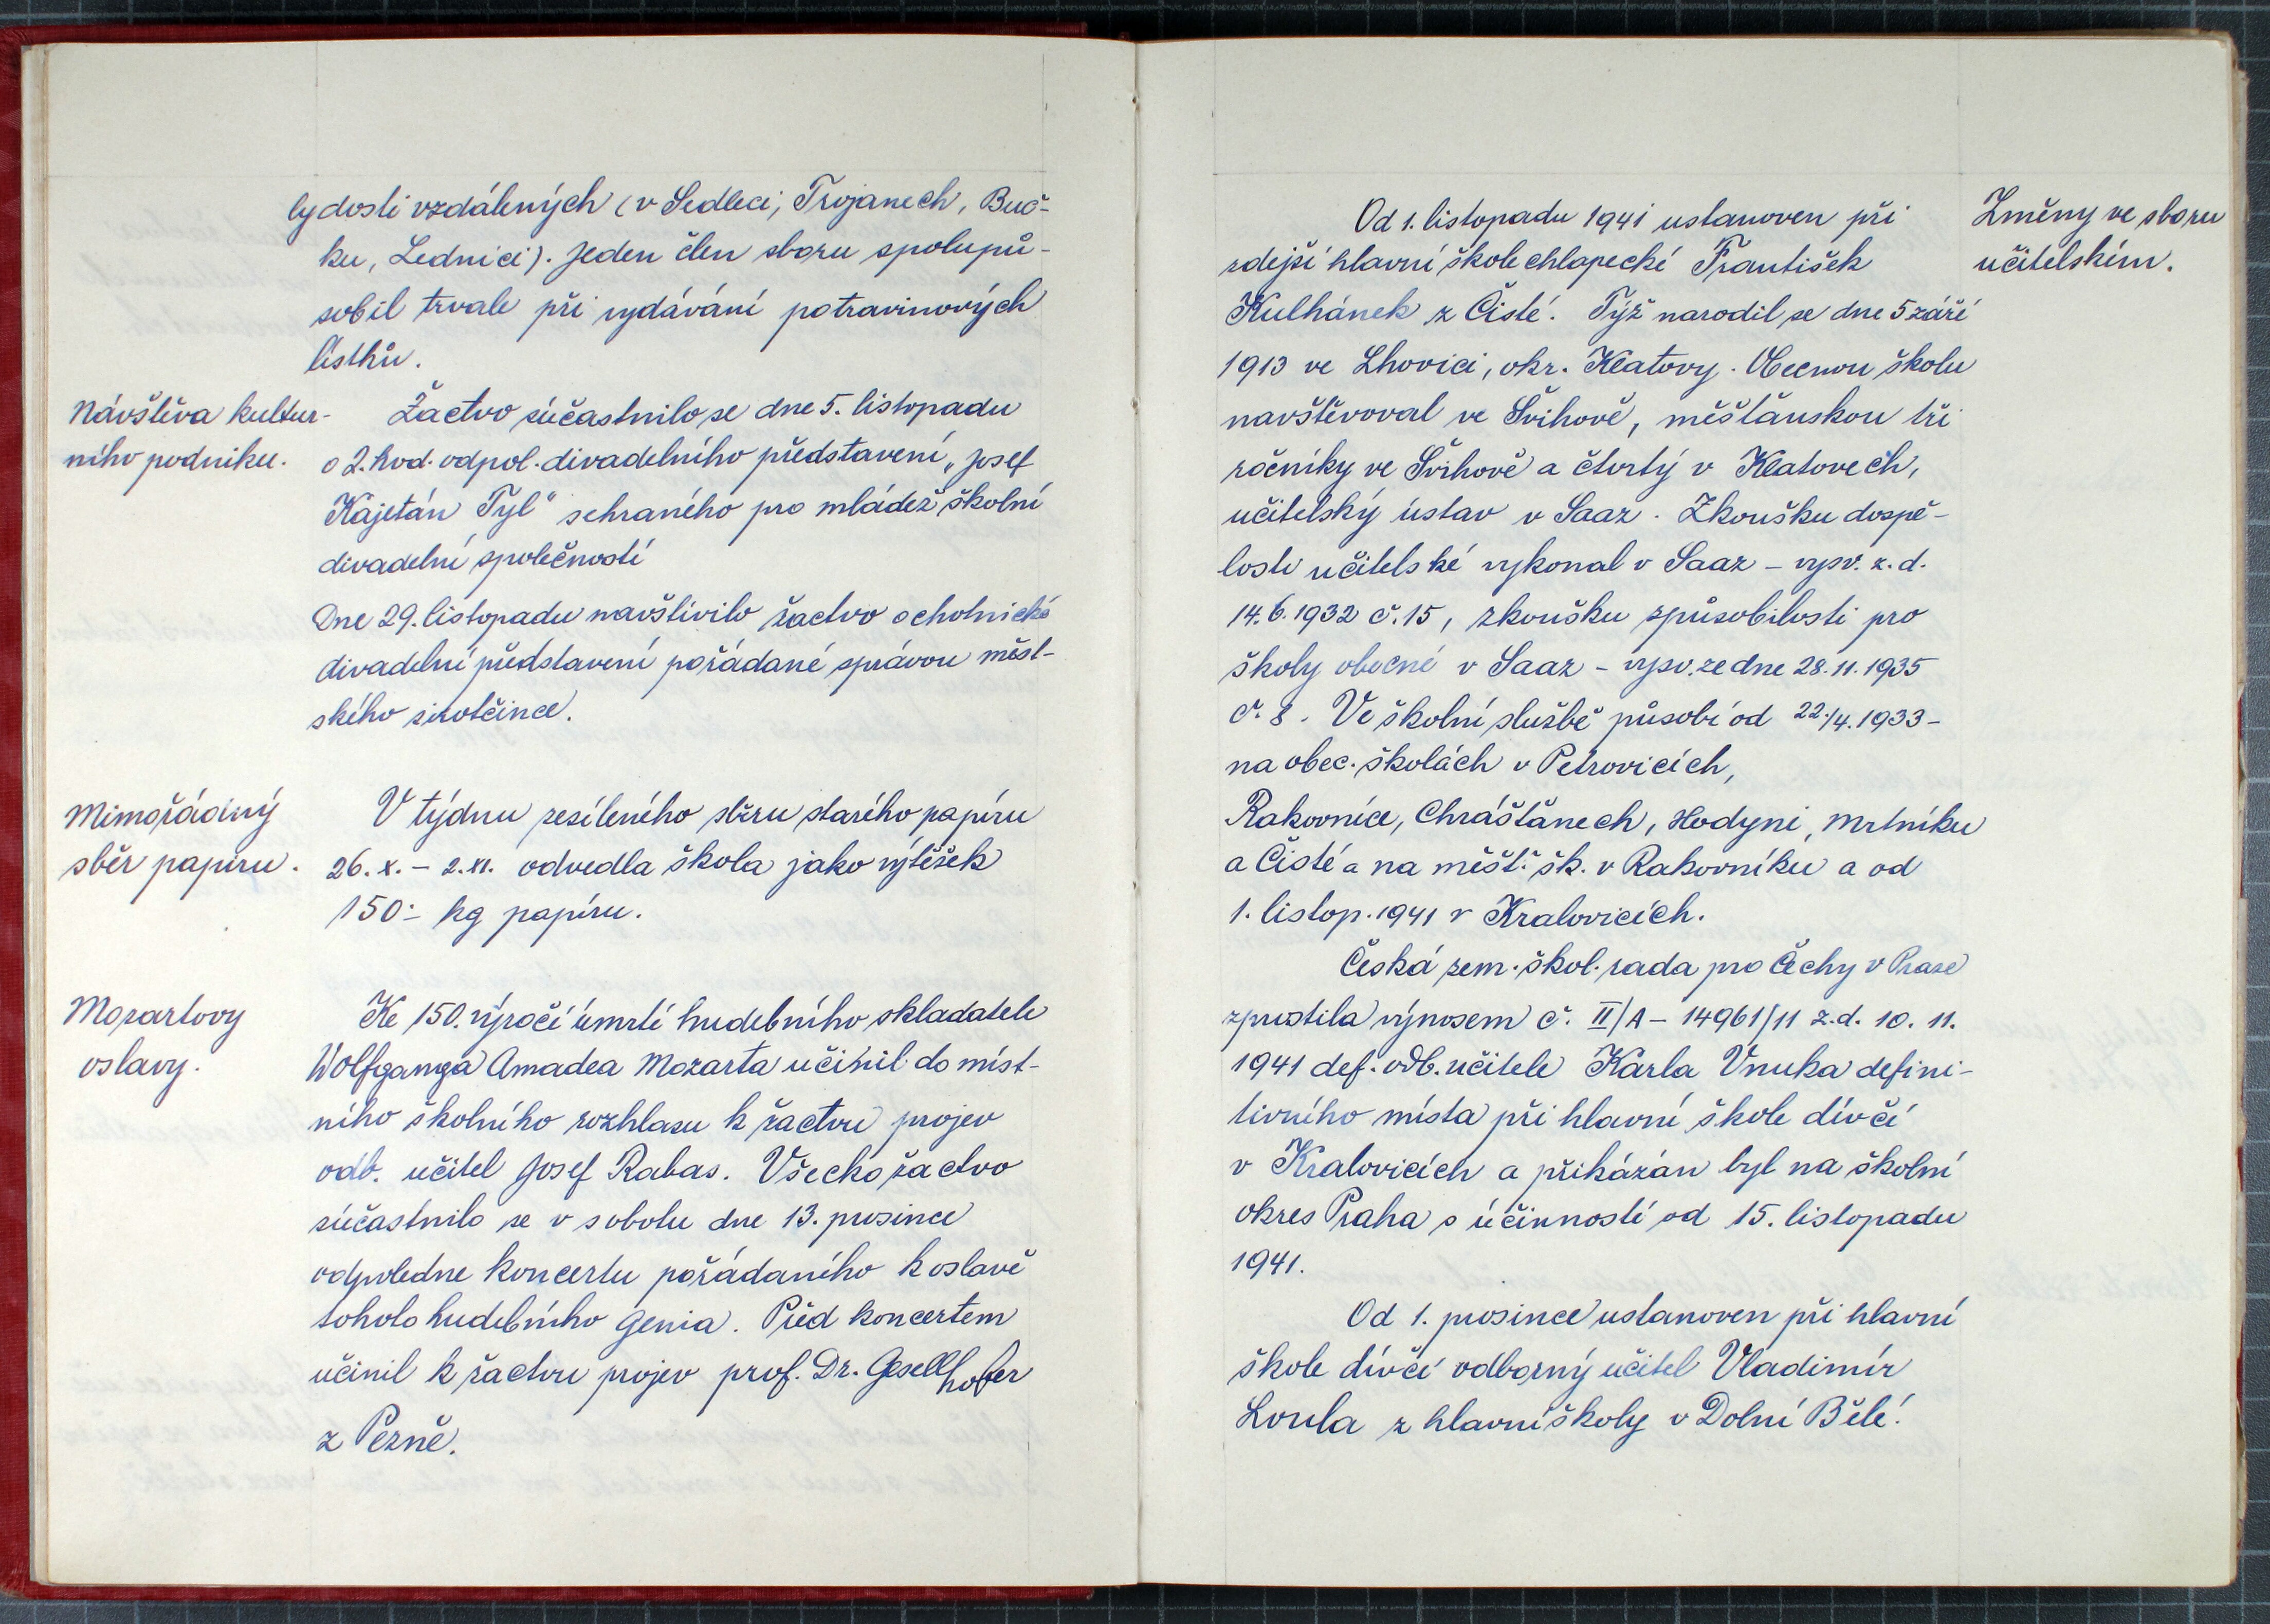 ly dosti vzdálených (v Sedleci, Trojanech, Buč-
ku, Lednici). Jeden člen sboru spolupů-
sobil trvale při vydávání potravinových
lístků.
Návštěva kultur-
ního podniku.
Žactvo súčastnilo se dne 5. listopadu
o 2. hod. odpol. divadelního představení „Josef
Kajetán Tyl" sehraného pro mládež školní
divadelní společností
Dne 29. listopadu navštívilo žactvo ochotnické
divadelní představení pořádané správou měst-
ského sirotčince.
Mimořádný
sběr papíru.
V týdnu zesíleného sběru starého papíru
26. X. – 2. XI. odvedla škola jako výtěžek
150·– kg papíru.
Mozartovy
oslavy.
Ke 150. výročí úmrtí hudebního skladatele
Wolfganga Amadea Mozarta učinil do míst-
ního školního rozhlasu k žactvu projev
odb. učitel Josef Rabas. Všecko žactvo
súčastnilo se v sobotu dne 13. prosince
odpoledne koncertu pořádaného k oslavě
tohoto hudebního genia. Před koncertem
učinil k žactvu projev prof. Dr. Gesellhofer
z Plzně.
Změny ve sboru
učitelském.
Od 1. listopadu 1941 ustanoven při
zdejší hlavní škole chlapecké František
Kulhánek z Čisté. Týž narodil se dne 5 září
1913 ve Lhovici, okr. Klatovy. Obecnou školu
navštěvoval ve Švihově, měšťanskou tři
ročníky ve Švihově a čtvrtý v Klatovech,
učitelský ústav v Saaz. Zkoušku dospě-
losti učitelské vykonal v Saaz – vysv. z. d.
14. 6. 1932 č. 15, zkoušku způsobilosti pro
školy obecné v Saaz – vysv. ze dne 28. 11. 1935
č. 8. Ve školní službě působí od 22./4. 1933 –
na obec. školách v Petrovicích,
Rakovníce, Chrášťanech, Hodyni, Mrtníku
a Čisté a na měšť. šk. v Rakovníku a od
1. listop. 1941 v Kralovicích.
Česká zem. škol. rada pro Čechy v Praze
zprostila výnosem č. II/A – 14961/11 z. d. 10. 11.
1941 def. odb. učitele Karla Vnuka defini-
tivního místa při hlavní škole dívčí
v Kralovicích a přikázán byl na školní
okres Praha s účinností od 15. listopadu
1941.
Od 1. prosince ustanoven při hlavní
škole dívčí odborný učitel Vladimír
Loula z hlavní školy v Dolní Bělé.